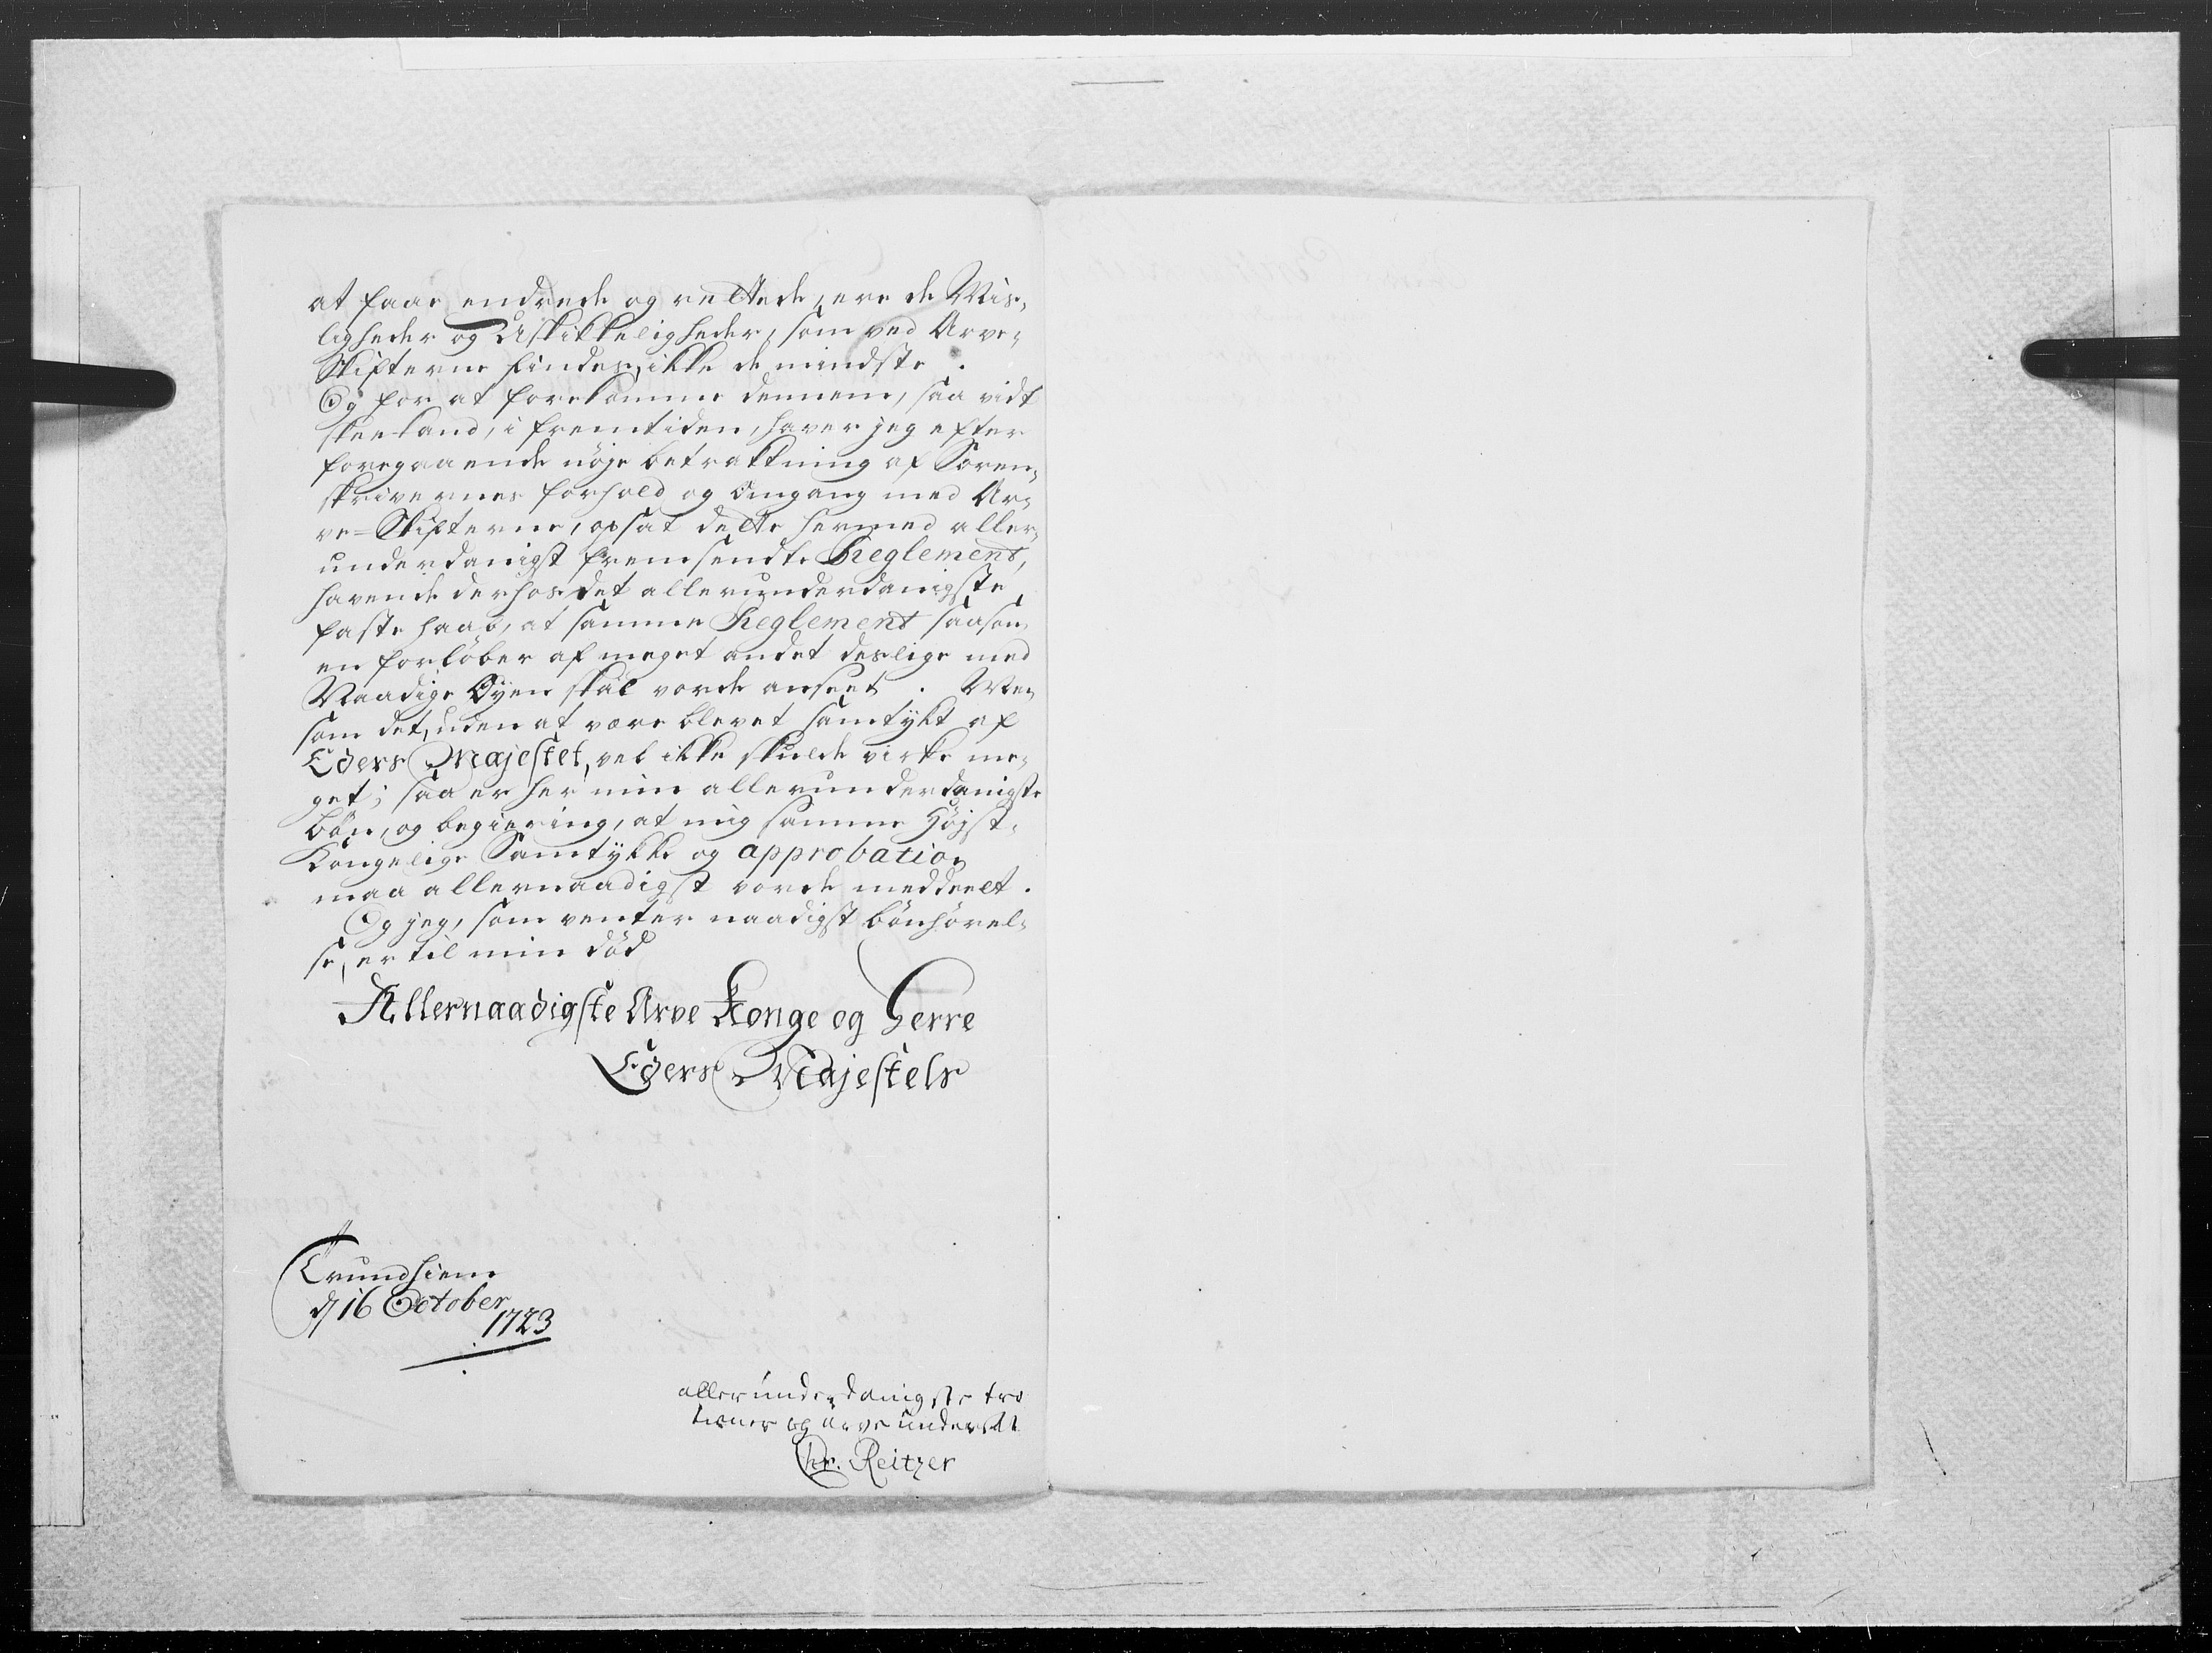 at faae endrede og rettede, ere de Mis-
ligheder og Uskikkeligheder, som ved Arve-
Skifterne findes, ikke de mindste.
Og for at forekomme dennem, saa vidt
skee kand, i fremtiden, haver jeg efter
foregaaende nöje betraktning af Soren-
skrivernes forhold og Omgang med Ar-
ve-Skifterne, opsat dette hermed aller-
underdanigst fremsendte Reglement,
havende derhos det allerunderdanigste
faste haab, at samme Reglement saasom
en forlöber af meget andet deslige med
Naadige Öyen skal vorde anseet. Men
som det, uden at være blevet samtykt af
Eders Majestet, vel ikke skulde virke me-
get; saa er her min allerunderdanigste
bön, og begiering, at mig samme Höjst-
Kongelige Samtykke og approbation
maa allernaadigst vorde meddeelt.
Og jeg, som venter naadigst bönhörel-
se, er til min död
Allernaadigste Arve Konge og Herre
Eders Majestets
Trundhiem
d 16 October
1723
allerunderdanigste tro
tiener og arve undersaat
Chr. Reitzer